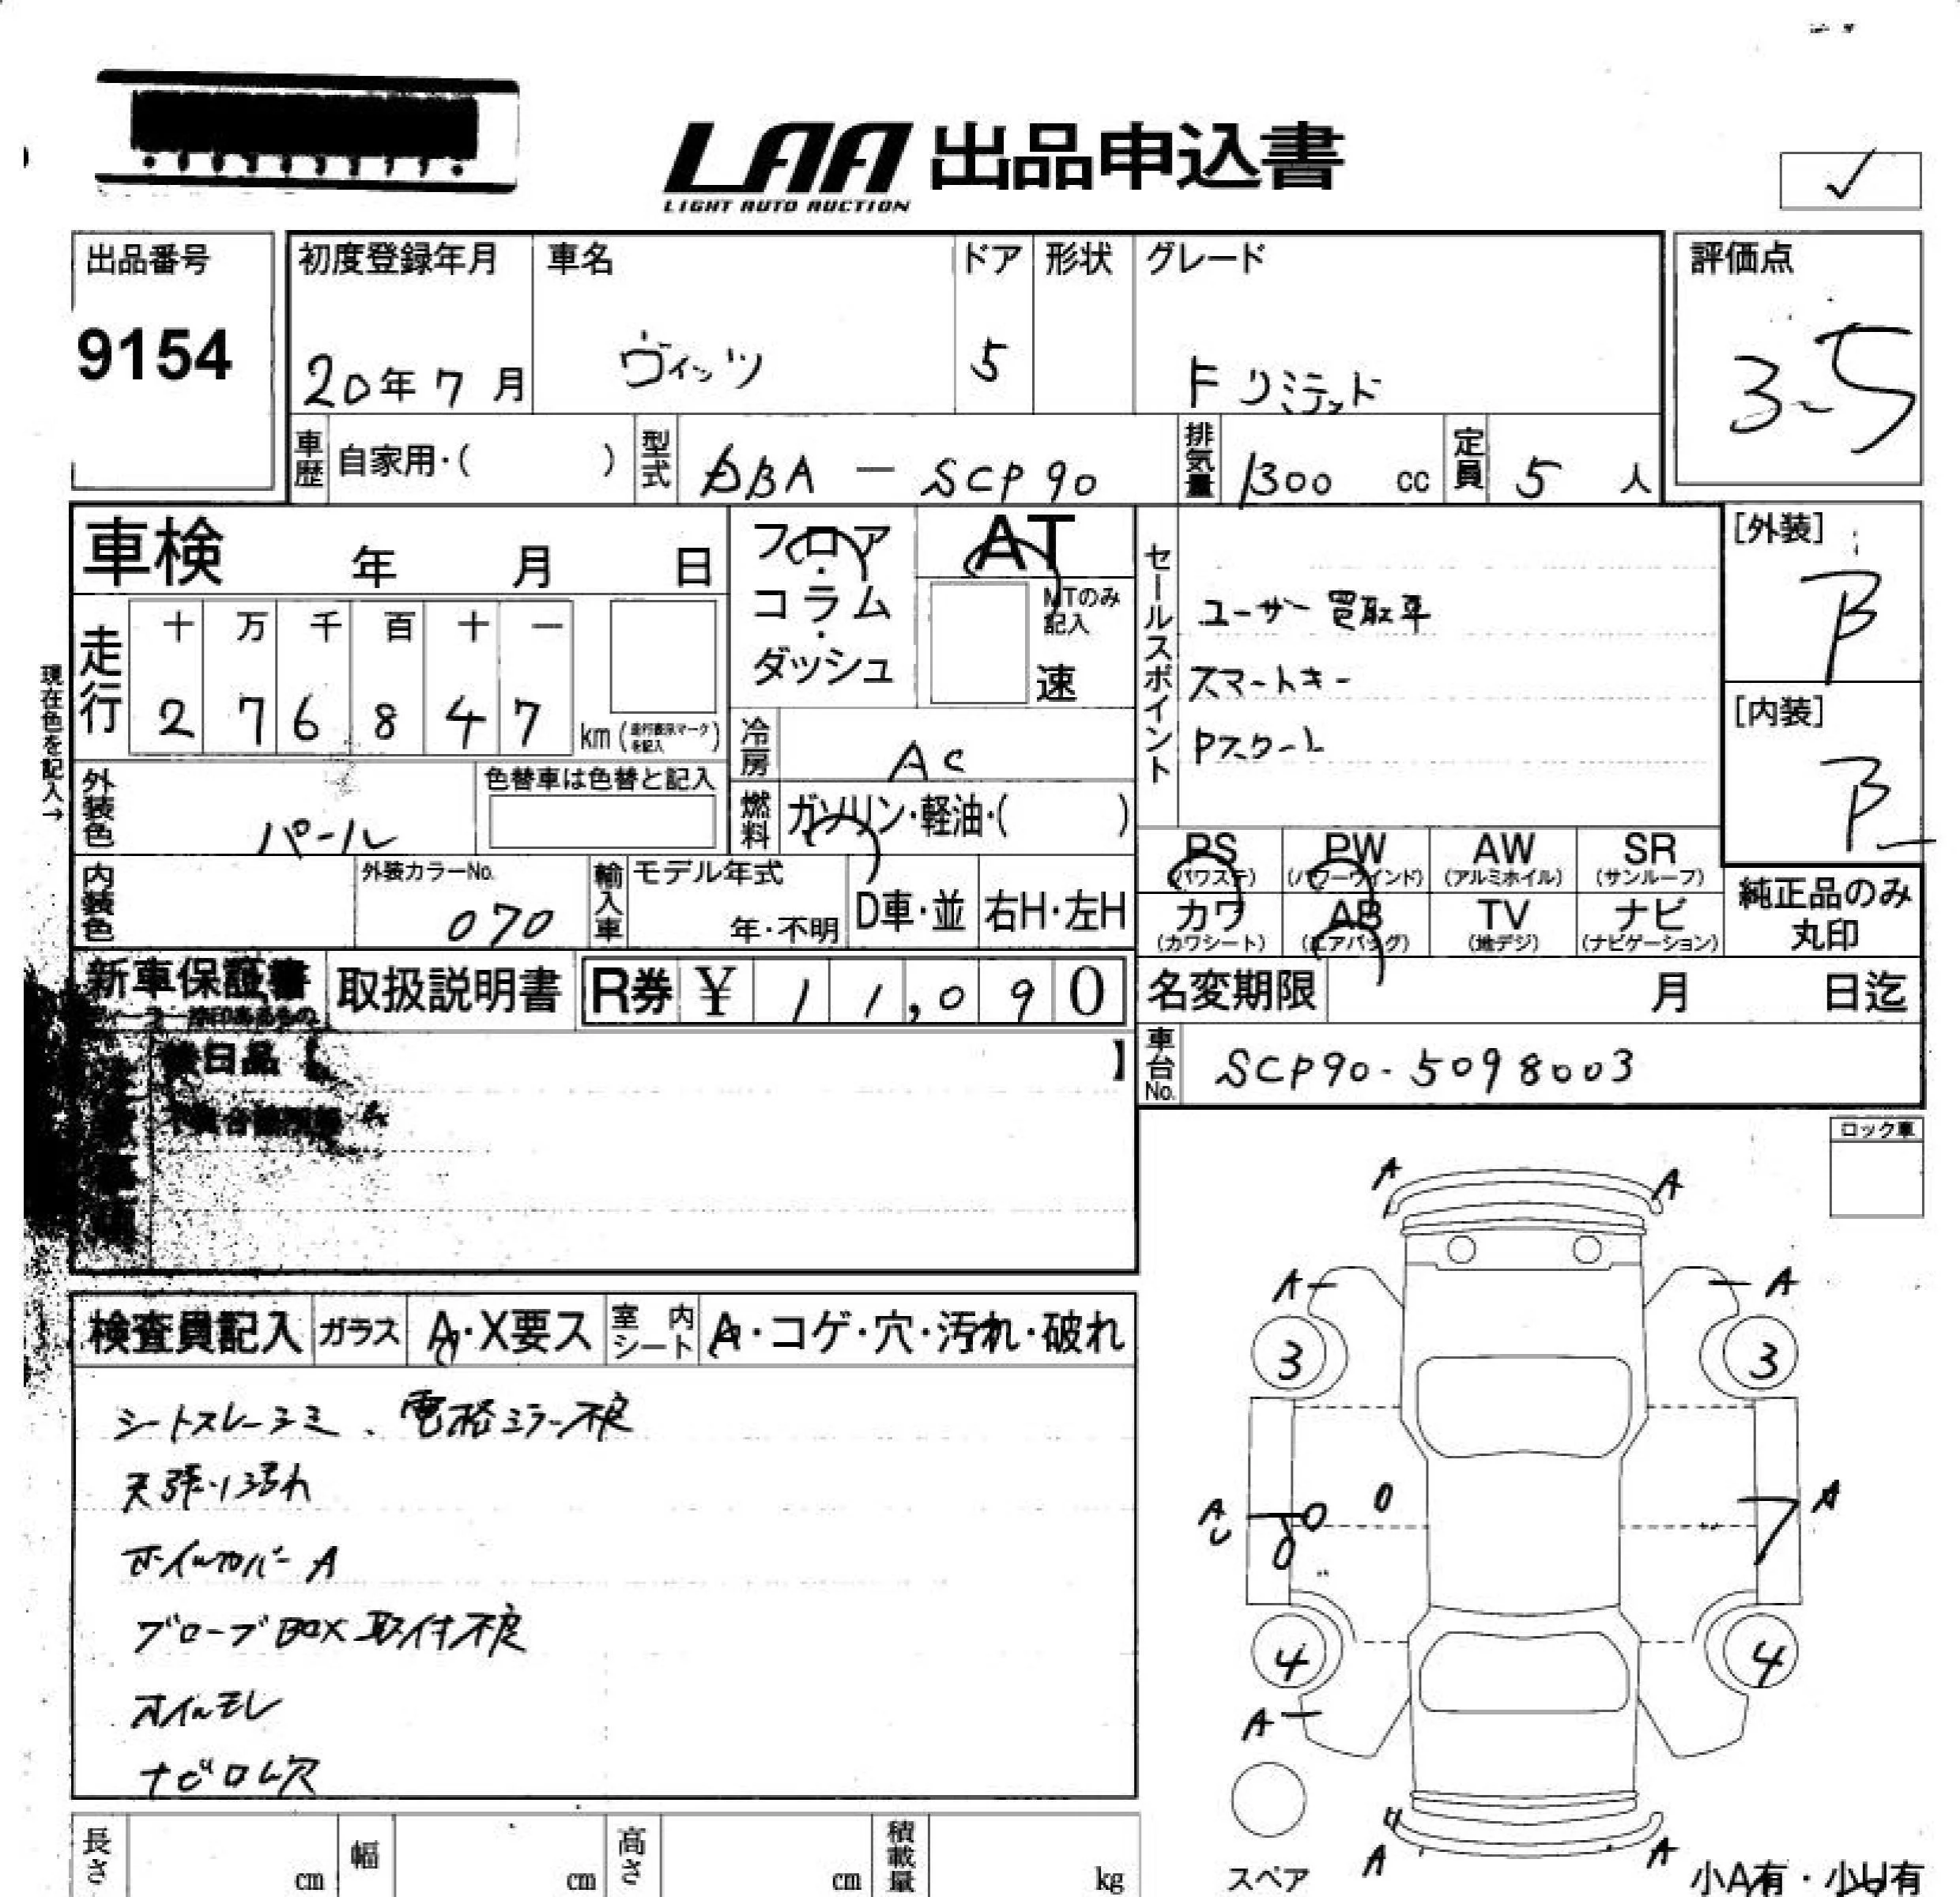 LAA 出品申込書
LIGHT AUTO AUCTION
✓
出品番号
9154
初度登録年月 車名 ドア 形状 グレード
20年7月 ヴィッツ 5 Fリミテッド
評価点
3.5
車歴 自家用・( ) 型式 DBA - SCP90 排気量 1300 cc 定員 5 人
車検 年 月 日
フロア・コラム・ダッシュ
AT
MTのみ記入
速
セールスポイント
ユーザー買取車
スマートキー
Pスタート
[外装]
B
[内装]
B
現在色を記入→
走行
十 万 千 百 十 一
2 7 6 8 4 7 km (走行表示マークを記入)
冷房 AC
外装色 パール
色替車は色替と記入
燃料 ガソリン・軽油・( )
内装色
外装カラーNo.
070
輸入車 モデル年式 年・不明 D車・並 右H・左H
PS (パワステ) PW (パワーウインド) AW (アルミホイル) SR (サンルーフ)
カワ (カワシート) AB (エアバッグ) TV (地デジ) ナビ (ナビゲーション)
純正品のみ丸印
新車保証書 取扱説明書 R券 ¥ 11,090
名変期限 月 日迄
後日品【 】
車台No. SCP90-5098003
ロック車
検査員記入 ガラス A・X要ス 室内シート A・コゲ・穴・汚れ・破れ
シートスレ、電格ミラー不良
天張り汚れ
ホイルカバーA
グローブBOX取付不良
オイルモレ
ナビロム欠
A A
A A
3 3
A A
4 4
A
A A
スペア
小A有・小U有
長さ cm 幅 cm 高さ cm 積載量 kg